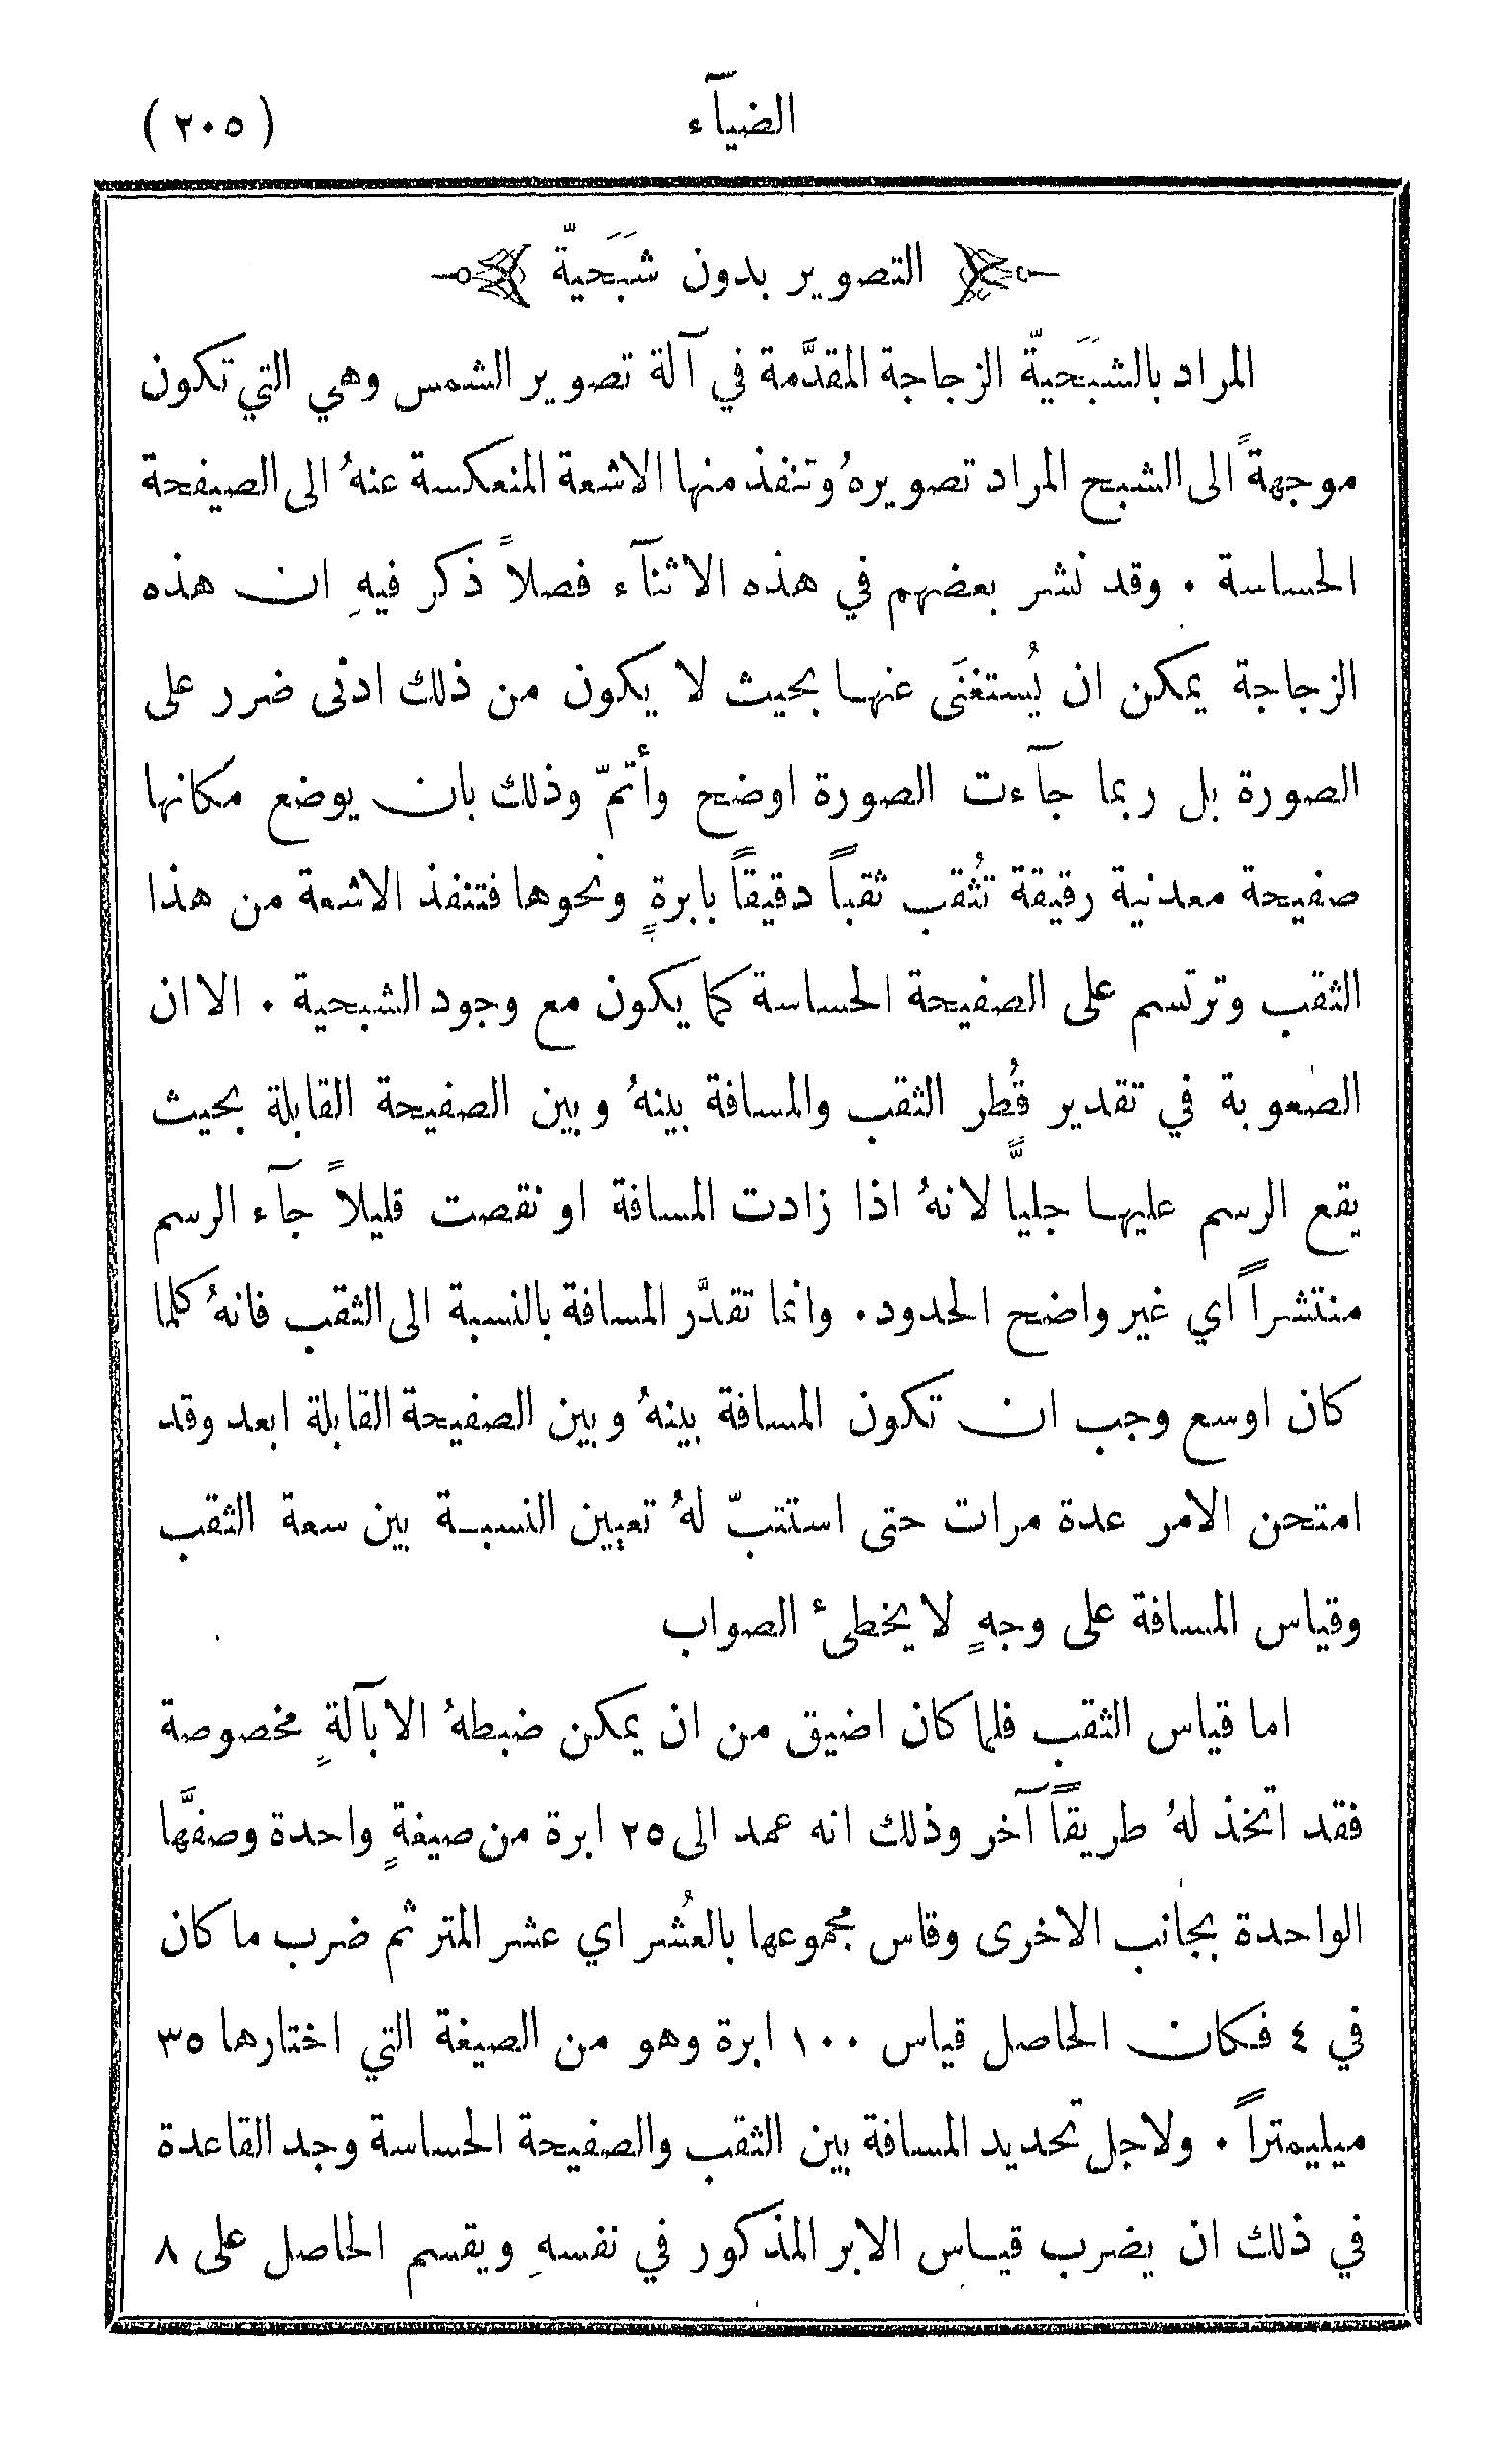 الضيآء
(٢٠٥)
التصوير بدون شبَحيَّة
المراد بالشبَحيَّة الزجاجة المقدَّمة في آلة تصوير الشمس وهي التي تكون
موجهةً الى الشبح المراد تصويرهُ وتنفذ منها الاشعة المنعكسة عنهُ الى الصيفحة
الحساسة ٠ وقد نشر بعضهم في هذه الاثنآء فصلاً ذكر فيهِ ان هذه
الزجاجة يمكن ان يُستغنَى عنها بحيث لا يكون من ذلك ادنى ضرر على
الصورة بل ربما جآءت الصورة اوضح وأتمّ وذلك بان يوضع مكانها
صفيحة معدنية رقيقة تُثقب ثقباً دقيقاً بابرةٍ ونحوها فتنفذ الاشعة من هذا
الثقب وترتسم على الصفيحة الحساسة كما يكون مع وجود الشبحية ٠ الا ان
الصعوبة في تقدير قُطر الثقب والمسافة بينهُ وبين الصفيحة القابلة بحيث
يقع الرسم عليها جليًّا لانهُ اذا زادت المسافة او نقصت قليلاً جآء الرسم
منتشراً اي غير واضح الحدود ٠ وانما تقدَّر المسافة بالنسبة الى الثقب فانهُ كلما
كان اوسع وجب ان تكون المسافة بينهُ وبين الصفيحة القابلة ابعد وقد
امتحن الامر عدة مرات حتى استتبّ لهُ تعيين النسبة بين سعة الثقب
وقياس المسافة على وجهٍ لا يخطئ الصواب
اما قياس الثقب فلما كان اضيق من ان يمكن ضبطهُ الا بآلةٍ مخصوصة
فقد اتخذ لهُ طريقاً آخر وذلك انه عمد الى ٢٥ ابرة من صيغةٍ واحدة وصفَّها
الواحدة بجانب الاخرى وقاس مجموعها بالعُشر اي عشر المتر ثم ضرب ما كان
في ٤ فكان الحاصل قياس ١٠٠ ابرة وهو من الصيغة التي اختارها ٣٥
ميليمتراً ٠ ولاجل تحديد المسافة بين الثقب والصفيحة الحساسة وجد القاعدة
في ذلك ان يضرب قياس الابر المذكور في نفسهِ ويقسم الحاصل على ٨